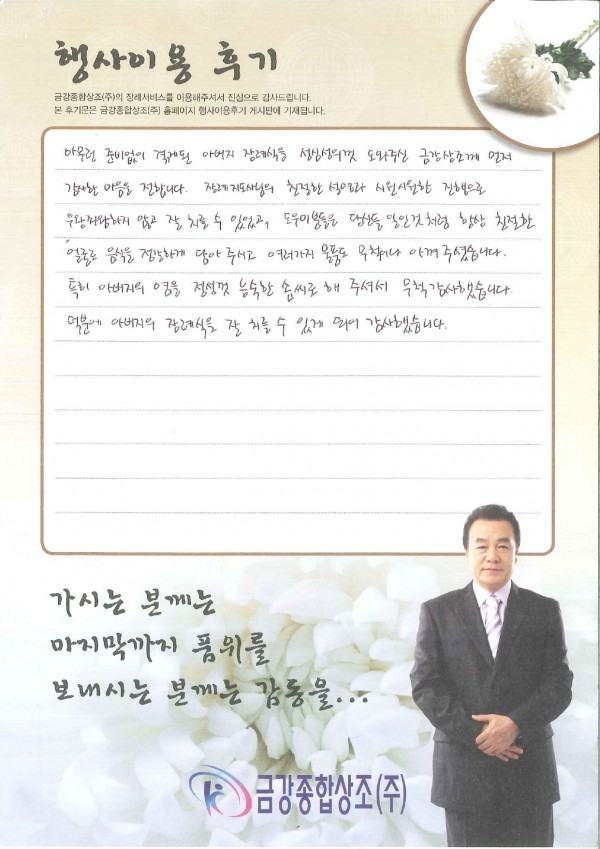 행사이용 후기
금강종합상조(주)의 장례서비스를 이용해주셔서 진심으로 감사드립니다.
본 후기문은 금강종합상조(주) 홈페이지 행사이용후기 게시판에 기재됩니다.
아무런 준비없이 겪게된 아버지 장례식을 성심성의껏 도와주신 금강상조께 먼저
감사한 마음을 전합니다. 장례지도사님의 친절한 설명과 시원시원한 진행으로
우왕좌왕하지 않고 잘 치를 수 있었고, 도우미분들은 당신들 일인것처럼 항상 친절한
얼굴로 음식을 정갈하게 담아 주시고 여러가지 물품도 무척이나 아껴 주셨습니다.
특히 아버지의 염을 정성껏 능숙한 솜씨로 해 주셔서 무척 감사했습니다.
덕분에 아버지의 장례식을 잘 치를 수 있게 되어 감사했습니다.
가시는 분께는
마지막까지 품위를
보내시는 분께는 감동을...
금강종합상조(주)